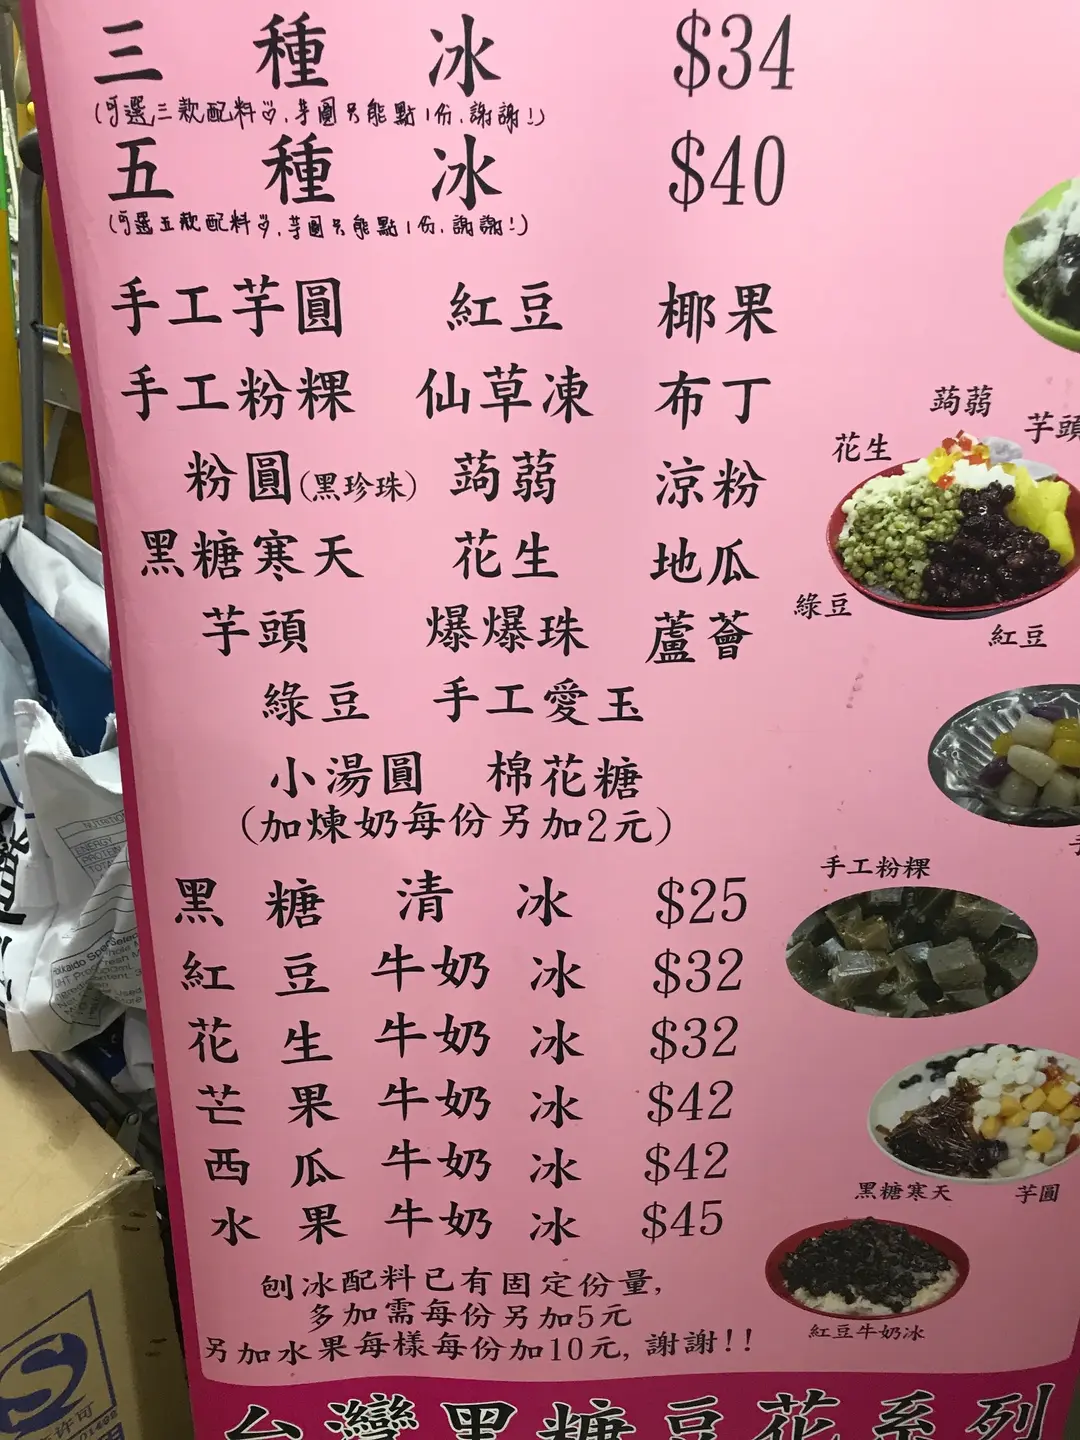 三種冰 $34
(可選三款配料,芋圓只能點1份,謝謝!)
五種冰 $40
(可選五款配料,芋圓只能點1份,謝謝!)
手工芋圓 紅豆 椰果
手工粉粿 仙草凍 布丁
粉圓(黑珍珠) 蒟蒻 涼粉
黑糖寒天 花生 地瓜
芋頭 爆爆珠 蘆薈
綠豆 手工愛玉
小湯圓 棉花糖
(加煉奶每份另加2元)
黑糖清冰 $25
紅豆牛奶冰 $32
花生牛奶冰 $32
芒果牛奶冰 $42
西瓜牛奶冰 $42
水果牛奶冰 $45
刨冰配料已有固定份量,
多加需每份另加5元
另加水果每樣每份加10元,謝謝!!
台灣黑糖豆花系列
蒟蒻
芋頭
花生
綠豆
紅豆
手工粉粿
黑糖寒天
芋圓
紅豆牛奶冰